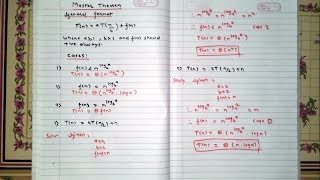 Master Theorem
General format
T(n) = aT(n/b) + f(n)
where a≥1, b>1 and f(n) should
+ve always.
Cases:
1) f(n) < n^log_b a
T(n) = Θ(n^log_b a)
2) f(n) = n^log_b a
T(n) = Θ(n^log_b a · logn)
3) f(n) > n^log_b a
T(n) = Θ(f(n))
1) T(n) = 4T(n/2) + n
Soln Given:
a=4
b=2
f(n)=n
∴ f(n) < n^log_b a
T(n) = Θ(n^log_b a)
T(n) = Θ(n²)
2) T(n) = 2T(n/2) + n
Soln Given:
a=2
b=2
f(n)=n
∴ f(n) = n^log_b a
T(n) = Θ(n^log_b a · logn)
T(n) = Θ(n·logn)